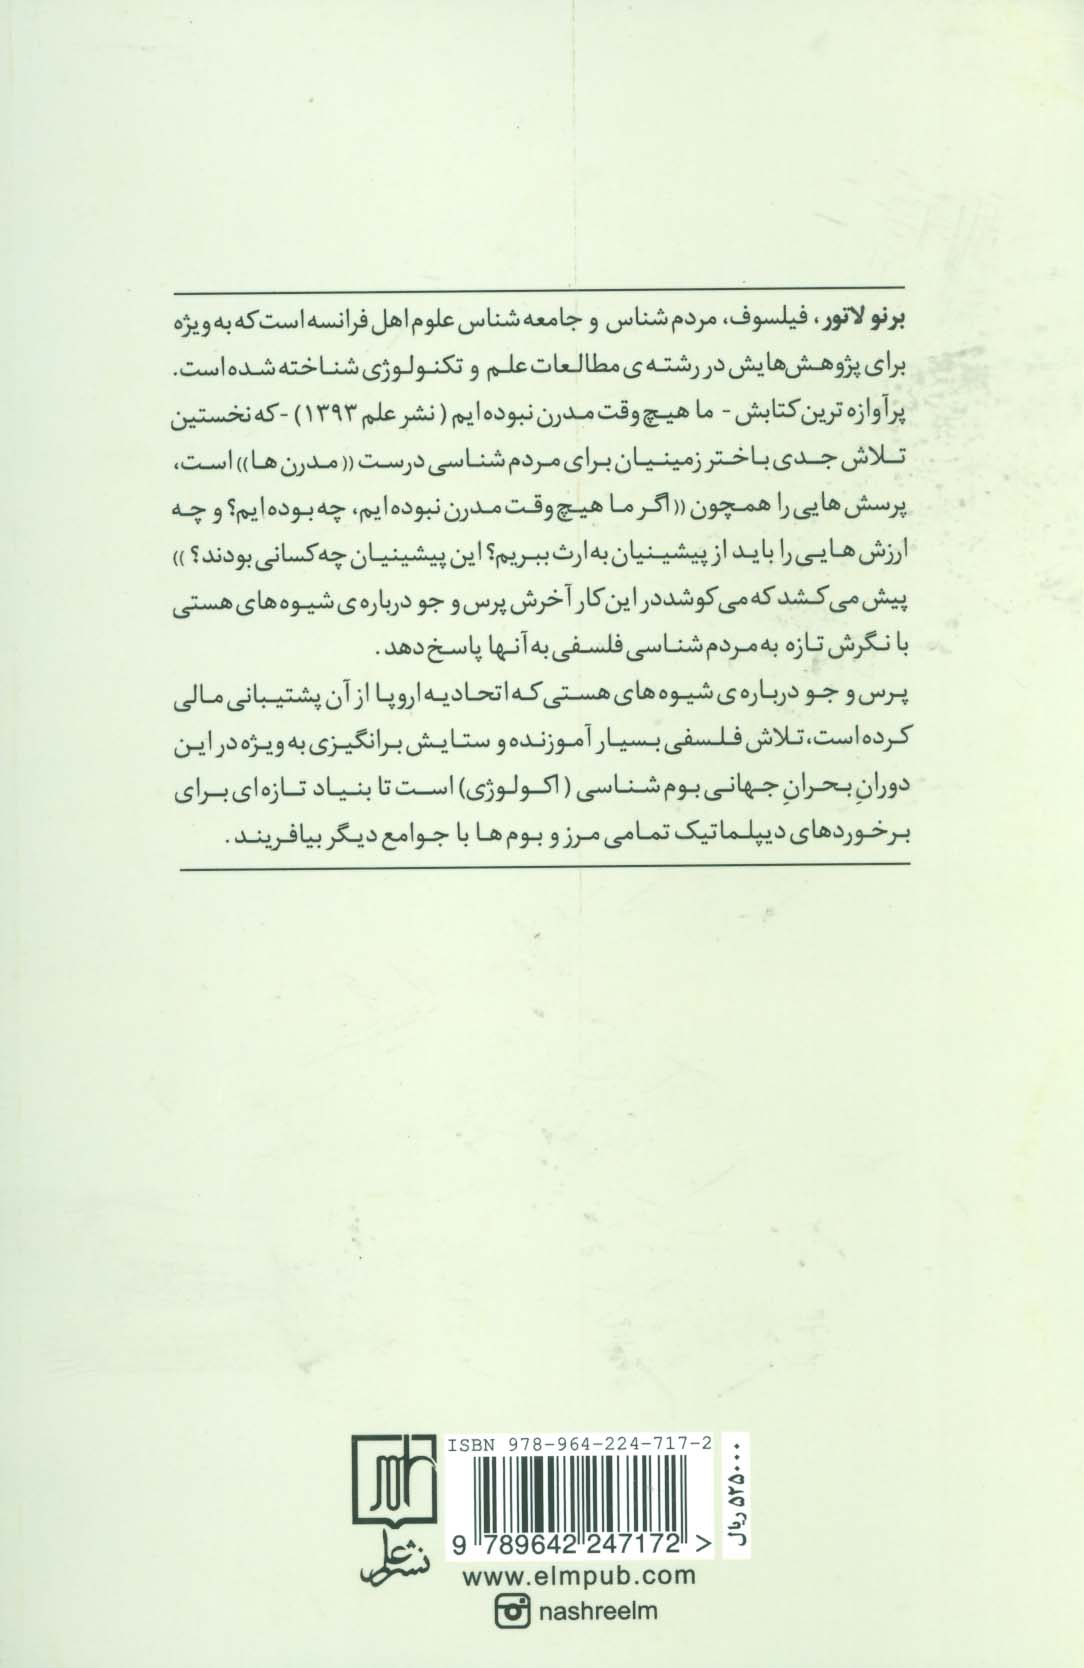 برنو لاتور، فیلسوف، مردم شناس و جامعه شناس علوم اهل فرانسه است که به ویژه
برای پژوهش‌هایش در رشته‌ی مطالعات علم و تکنولوژی شناخته شده است.
پرآوازه ترین کتابش - ما هیچ وقت مدرن نبوده ایم (نشر علم ۱۳۹۳) - که نخستین
تلاش جدی باختر زمینیان برای مردم شناسی درست ((مدرن ها)) است،
پرسش هایی را همچون ((اگر ما هیچ وقت مدرن نبوده ایم، چه بوده ایم؟ و چه
ارزش هایی را باید از پیشینیان به ارث ببریم؟ این پیشینیان چه کسانی بودند؟ ))
پیش می کشد که می کوشد در این کار آخرش پرس و جو درباره ی شیوه های هستی
با نگرش تازه به مردم شناسی فلسفی به آنها پاسخ دهد.
پرس و جو درباره ی شیوه های هستی که اتحادیه اروپا از آن پشتیبانی مالی
کرده است، تلاش فلسفی بسیار آموزنده و ستایش برانگیزی به ویژه در این
دورانِ بحرانِ جهانی بوم شناسی (اکولوژی) است تا بنیاد تازه ای برای
برخوردهای دیپلماتیک تمامی مرز و بوم ها با جوامع دیگر بیافریند.
ISBN 978-964-224-717-2
9 789642 247172 >
۵۲۵۰۰۰ ریال
نشر علم
www.elmpub.com
nashreelm